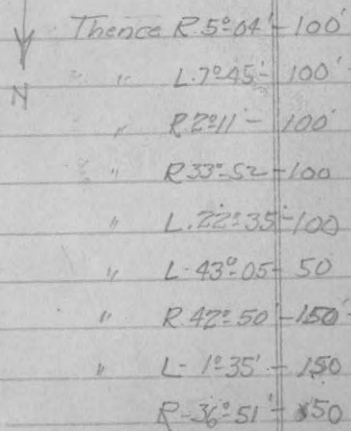 Thence R. 5°-04' - 100'
N " L. 7°-45' - 100'
" R 2°11' - 100'
" R 33°-52 - 100
" L. 22°-35' - 100
" L - 43°-05 - 50
" R. 42°-50' - 150'
" L - 1°-35' - 150
R - 36°-51' - 150